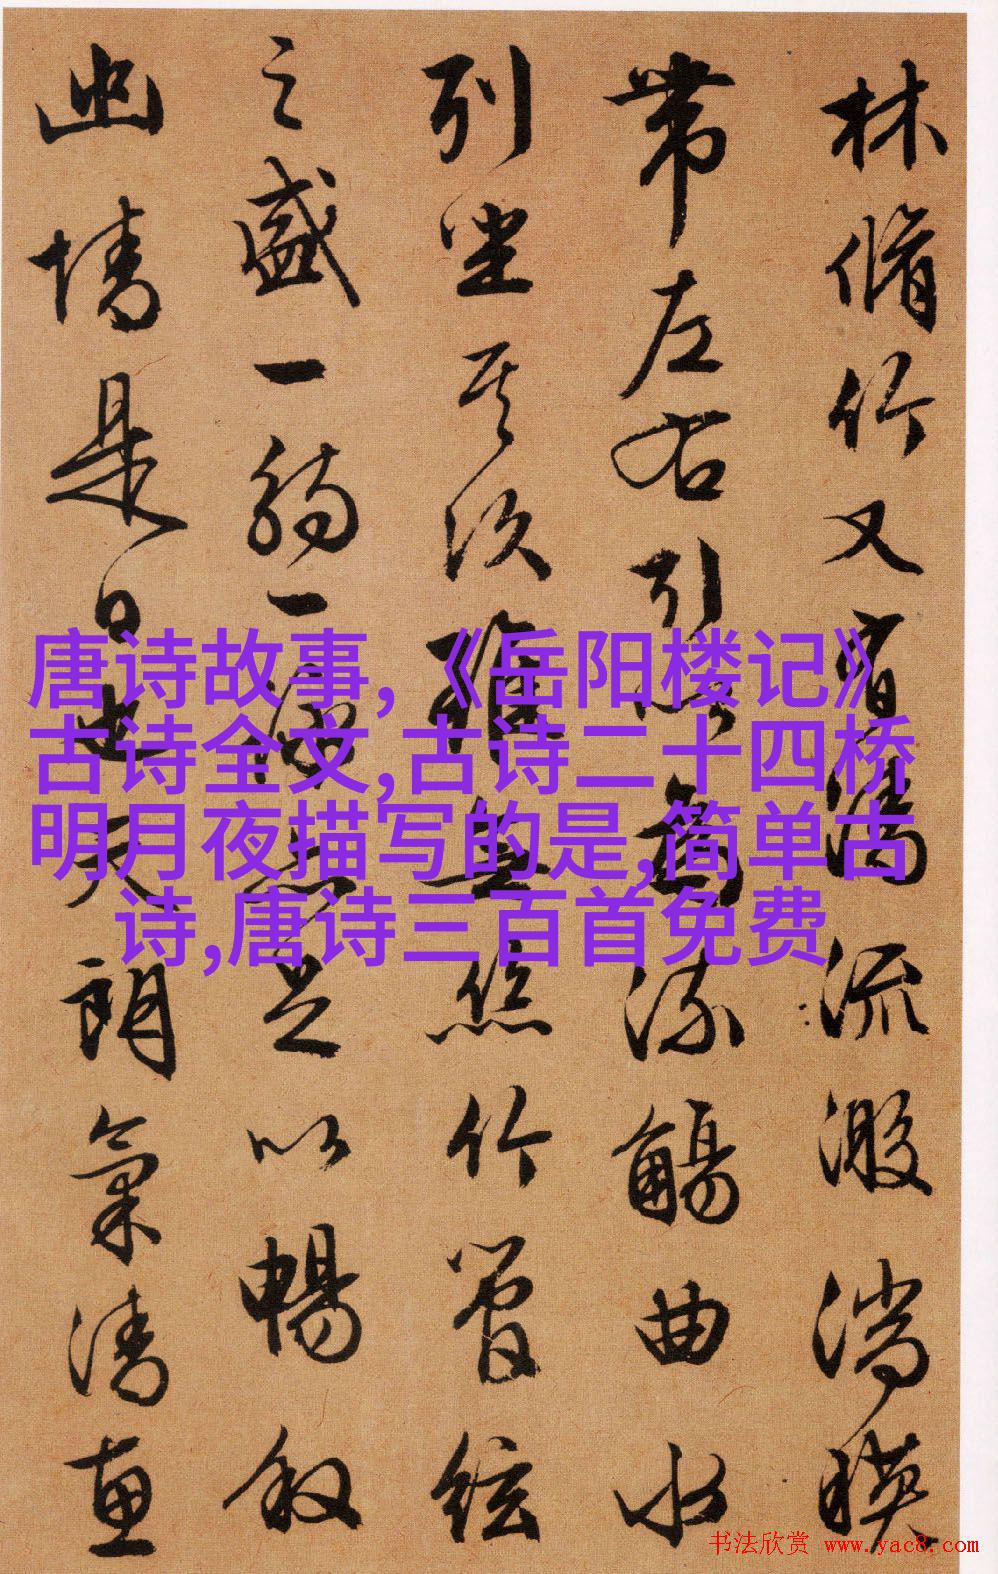 林脩竹又有清流激湍暎
帶左右引以為流觴曲水
列坐其次雖無絲竹管絃
之盛一觴一詠亦足以暢敘
幽情是日也天朗氣清惠
唐诗故事,《岳阳楼记》
古诗全文,古诗二十四桥
明月夜描写的是,简单古
诗,唐诗三百首免费
书法欣赏 www.yac8.com